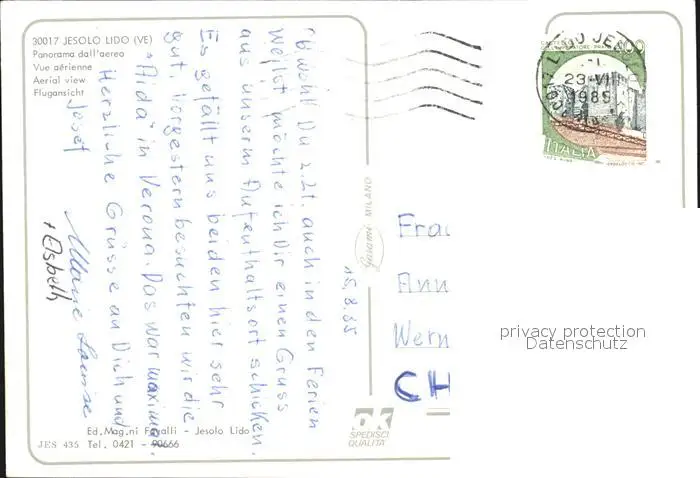 30017 JESOLO LIDO (VE)
Panorama dall'aereo
Vue aérienne
Aerial view
Flugansicht
15.8.85
Obwohl Du z.Zt. auch in den Ferien
Weilst, möchte ich Dir einen Gruss
aus unserm Aufenthaltsort schicken.
Es gefällt uns beiden hier sehr
gut. Vorgestern besuchten wir die
"Aida" in Verona. Das war maximal.
Herzliche Grüsse an Dich und
Josef
Marie Louise
+ Elsbeth
Garami MILANO
LIDO JESOLO
23-VIII
1985
ITALIA
Frau
Ann
Wern
CH
privacy protection
Datenschutz
OK
SPEDISCI
QUALITA'
Ed. Mag.ni Fagalli - Jesolo Lido
JES 435 Tel. 0421 - 90666